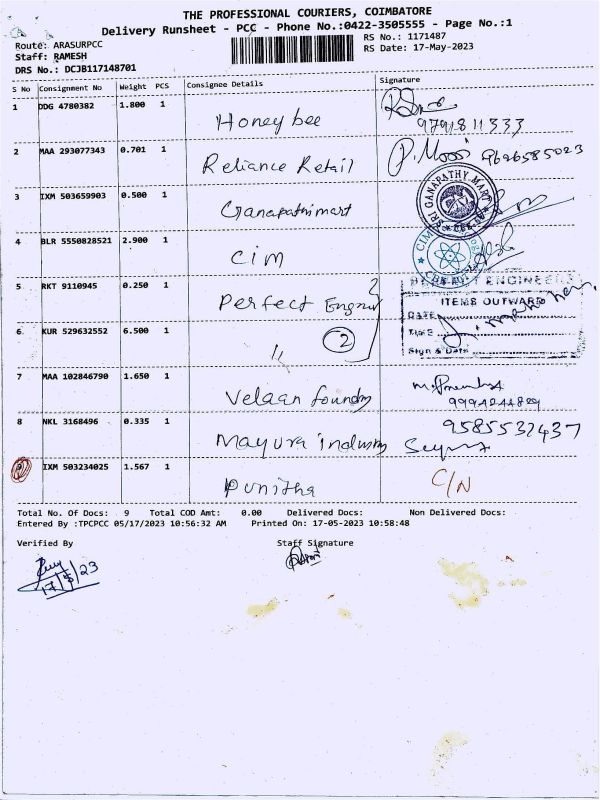 THE PROFESSIONAL COURIERS, COIMBATORE
Delivery Runsheet - PCC - Phone No.:0422-3505555 - Page No.:1
Route: ARASURPCC
RS No.: 1171487
Staff: RAMESH
RS Date: 17-May-2023
DRS No.: DCJB117148701
S No Consignment No Weight PCS Consignee Details Signature
1 DDG 4780382 1.800 1
Honey bee 9791811333
2 MAA 293077343 0.701 1
Reliance Retail 9626585023
3 IXM 503659903 0.500 1
Ganapathimart SRI GANAPATHY MART
4 BLR 5550828521 2.900 1
CIM CIM
5 RKT 9110945 0.250 1
Perfect ENGINEERS
ITEMS OUTWARD
DATE
6 KUR 529632552 6.500 1
" 2 TIME
Sign & Date
7 MAA 102846790 1.650 1
Velaan foundry
8 NKL 3168496 0.335 1
Mayura industry 9585532437
9 IXM 503234025 1.567 1
Punitha C/N
Total No. Of Docs: 9 Total COD Amt: 0.00 Delivered Docs: Non Delivered Docs:
Entered By :TPCPCC 05/17/2023 10:56:32 AM Printed On: 17-05-2023 10:58:48
Verified By Staff Signature
17/5/23